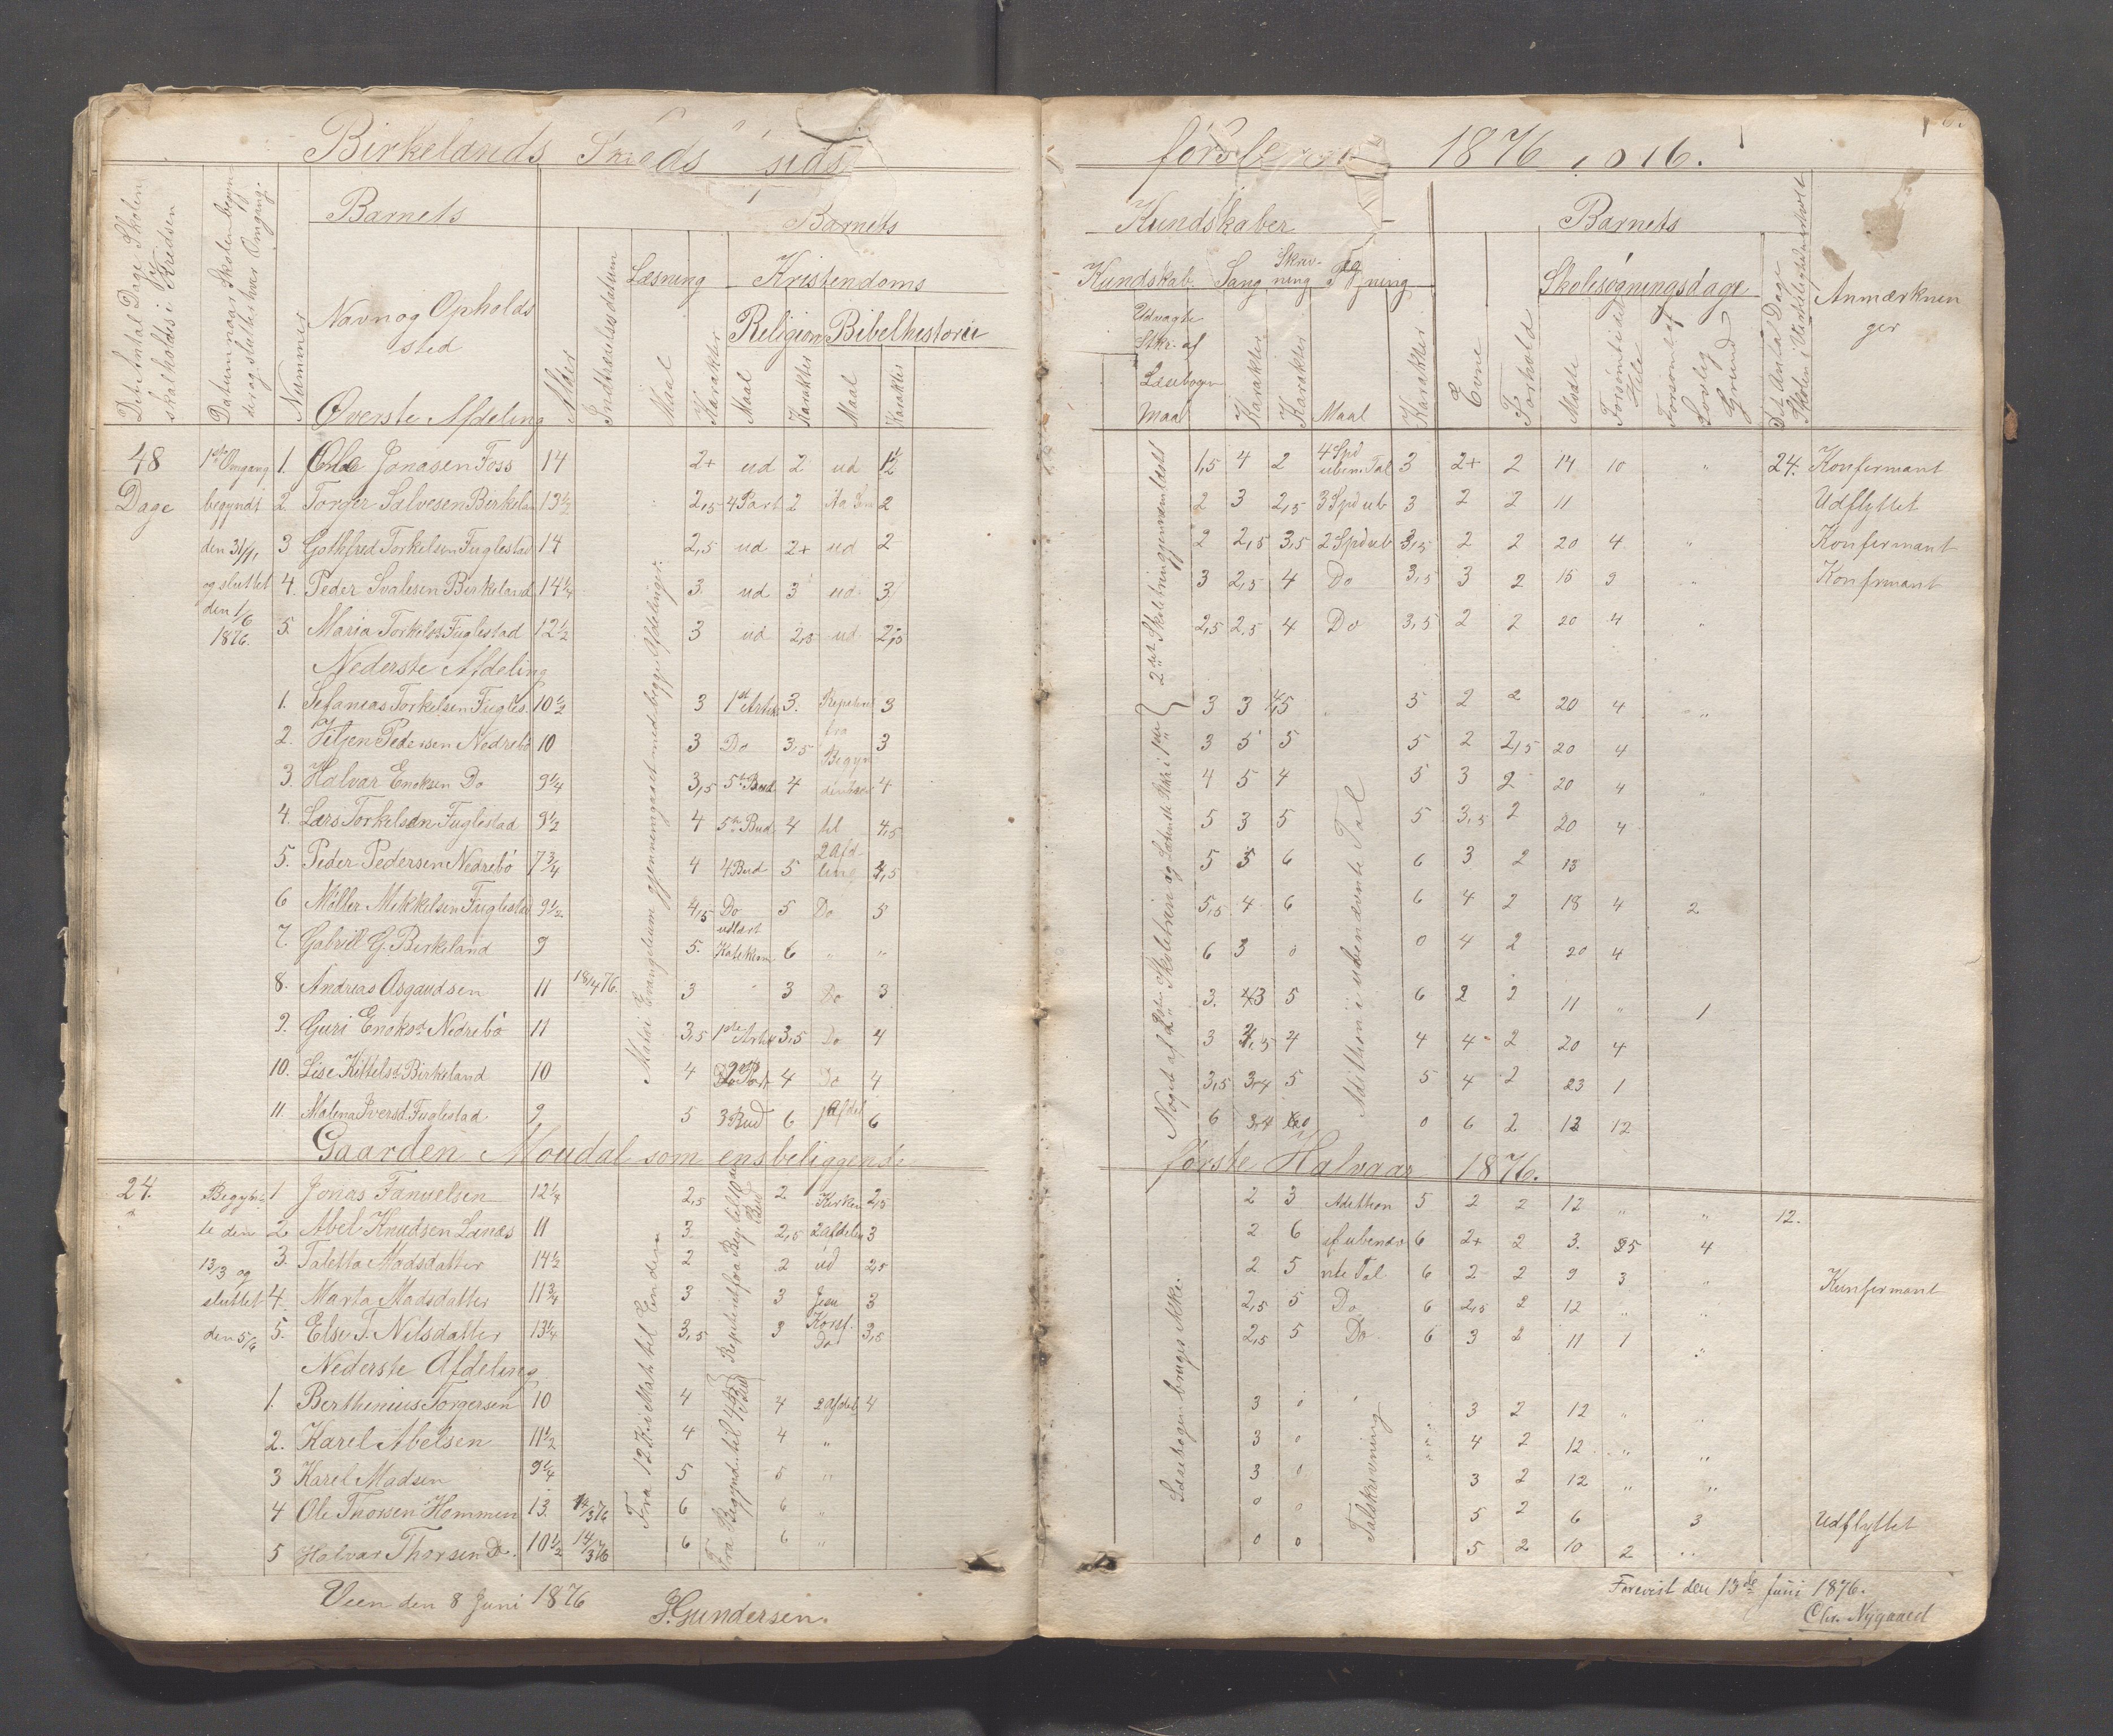 Birkelands
1876
Barnets
Barnets
Kundskaber
Barnets
Læsning
Kristendoms
Kundskab
Sang
Skriv-
ning
Skolesøgningsdage
Anmærknin
ger
Det Antal Dage Skolen
skal holdes i Kredsen
Datum naar Skolen begyn
der og slutter hver Omgang.
Nummer
Navn og Opholds
sted
Alder
Indtrædelsesdatum
Maal
Karakter
Religion
Bibelhistorie
Maal
Karakter
Maal
Karakter
Udvalgte
Stkr. af
Læsebogen
Maal
Karakter
Karakter
Maal
Karakter
Evne
Forhold
Mødte
Forsømte
Hele
Forsømt af
Lovlig
Grund
Det Antal Dage
Skolen i Virkeligheden holdt
Øverste Afdeling
48 1ste Omgang 1. Ole Jonasen Foss 14 2+ ud 2 ud 1½ 1,5 4 2 4 Spd uben. Tal 3 2+ 2 14 10 " 24. Konfirmant
Dage begyndt 2 Torger Salvesen Birkelan 13½ 2,5 4 Part 2 2 2 3 2,5 3 Spd ub 3 2 2 11 Udflyttet
den 31/1 3 Gothfred Torkelsen Fuglestad 14 2,5 ud 2+ ud 2 2 2,5 3,5 2 Spd ub 3,5 2 2 20 4 " Konfirmant
og sluttet 4. Peder Svalesen Birkeland 14¼ 3. ud 3 ud 3 3 2,5 4 Do 3,5 3 2 15 9 " Konfirmant
den 1/6
1876. 5. Maria Torkelsd Fuglestad 12½ 3 ud 2,5 ud 2,5 2,5 2,5 4 Do 3,5 2 2 20 4 "
Nederste Afdeling
1. Sefanias Torkelsen Fugles. 10½ 3 1ste Artik 3. 3 3 3 4,5 5 2 2 20 4 "
2. Pedersen Nedrebø 10 3 Do 3,5 3 3 5 5 5 2 2,5 20 4
3. Halvar Enoksen Do 9¼ 3,5 5te Bud 4 4 4 5 4 5 3 2 20 4 "
4. Lars Torkelsen Fuglestad 9½ 4 5te Bud 4 til 4,5 5 3 5 5 3,5 2 20 4
5. Peder Pedersen Nedrebø 7¾ 4 4 Bud 5 2 Afd ling 4,5 5 5 6 6 3 2 13
6 Møller Mikkelsen Fuglestad 9½ 4,5 Do 5 Do 5 5,5 4 6 6 4 2 18 4 2
7. Gabriel G. Birkeland 9 5. udlært Katekism 6 " " 6 3 0 0 4 2 20 4
8. Andreas Asgaudsen 11 18/4 76. 3 " 3 Do 3 3. 3 5 6 2 2 11 " 1
9. Guri Enoksd Nedrebø 11 3,5 1ste Artik 3,5 Do 4 3 4 4 4 2 20 4
10. Lise Kittelsd. Birkeland 10 4 4 Do 4 3,5 3-4 5 5 4 2 23 1
11. Malena Iversd. Fuglestad 9 5 3 Bud 6 1 Afdel 6 6 3-4 0 0 6 2 12 12
Matthæi Evangelium gjennemgaaet med begge Afdelinger.
2det Skoletrin gjennemlæst
Noget af 2det Skoletrin og
Addition i ubenævnte Tal
Gaarden Moudal som ensbeliggende
første Halvaar 1876.
24. Begynd- 1 Jonas Fanuelsen 12¼ 2,5 2 Kirken 2,5 2 3 Adition 5 2 2 12 " " 12.
te den 2 Abel Knudsen Lanes 11 3. 2,5 2 afdelin 3 2 6 i ubenæv 6 2+ 2 3. 25 4
13/3 og 3. Taletta Madsdatter 14½ 2 2 ud 2,5 2 5 nte Tal 6 2- 2 9 3 " Kunfirmant
sluttet 4. Marta Madsdatter 11¾ 3 3 Jesu Korsf. 3 2,5 5 Do 6 2,5 2 12 " "
den 5/6 5. Else T. Nilsdatter 13¼ 3,5 3 Do 3,5 2,5 5 Do 6 3 2 11 1 "
Nederste Afdeling
1. Berthinius Torgersen 10 4 4 2 afdel 4 3 0 3 2 12 "
2. Karel Abelsen 11½ 4 4 " 3 0 4 2 12 " "
3 Karel Madsen 9¼ 5 5 " 3 0 3 2 12 " "
4 Ole Thorsen Hommen 13. 14/3 76 6 6 " 0 0 5 2 6 3 Udflyttet
5 Halvar Thorsen Do. 10½ 14/3 76 6 6 " 0 0 5 2 10 2 "
Fra 12 K. i Math til Enden
Repiteret fra Beg. til 10de Bud
Fra Begynd. til 4de Bud
Læsebogen bruges ikke.
Talskrivning
Veen den 8 Juni 1876
J. Gundersen.
Forevist den 13de Juni 1876.
Chr. Nygaard